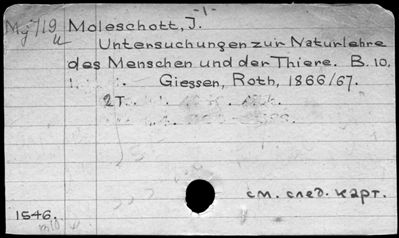 -1-
Moleschott, J.
Untersuchungen zur Naturlehre
des Menschen und der Thiere. B. 10,
Giessen, Roth, 1866/67.
2T.
см. след. карт.
1546.